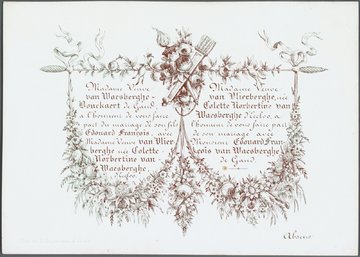 Madame Veuve
van Waesberghe-
Bouckaert de Gand,
a l'honneur de vous faire
part du mariage de son fils
Edouard François, avec
Madame Veuve van Wier-
berghe née Colette
Norbertine van
Waesberghe
d'Ecloo.
Madame Veuve
van Wierberghe, née
Colette Norbertine van
Waesberghe d'Ecloo, a
l'honneur de vous faire part
de son mariage avec
Monsieur Edouard Fran-
çois van Waesberghe
de Gand